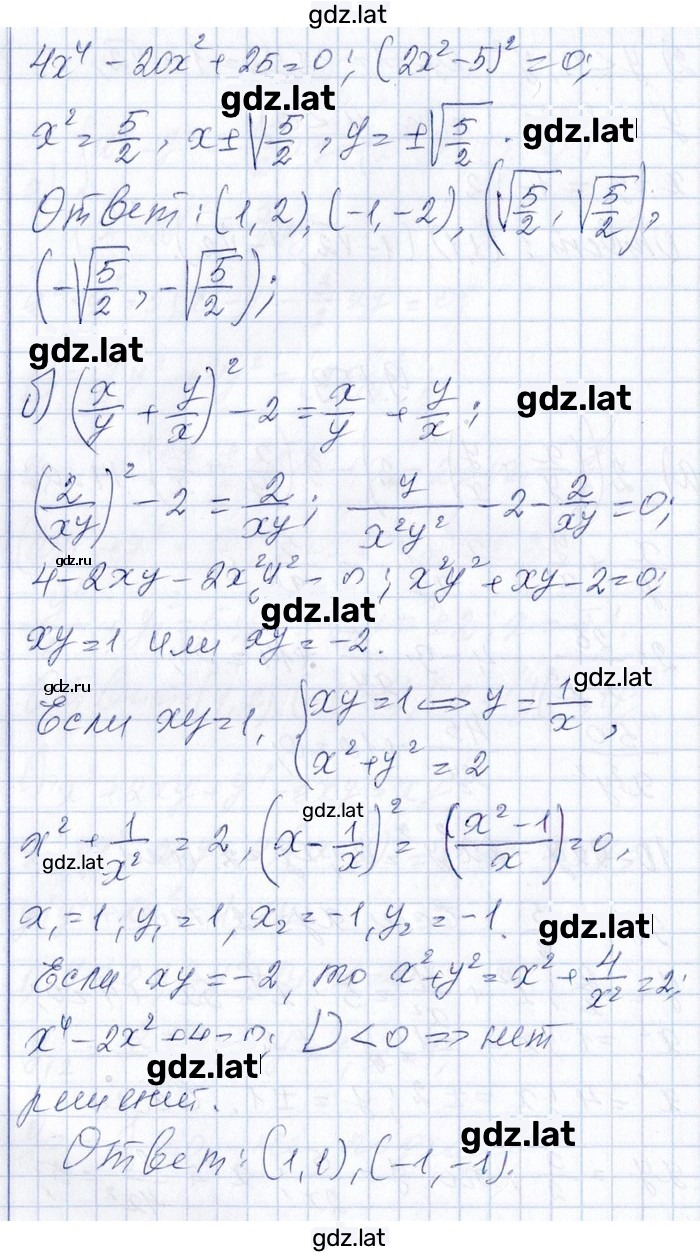 gdz.lat
4x⁴ - 20x² + 25 = 0; (2x² - 5)² = 0;
gdz.lat
x² = 5/2, x ± √(5/2), y = ± √(5/2).
gdz.lat
Ответ: (1, 2), (-1, -2), (√(5/2), √(5/2));
(-√(5/2), -√(5/2));
gdz.lat
б) (x/y + y/x)² - 2 = x/y + y/x;
gdz.lat
(2/xy)² - 2 = 2/xy; y/x²y² - 2 - 2/xy = 0;
gdz.ru
4 - 2xy - 2x²y² = 0; x²y² + xy - 2 = 0;
gdz.lat
xy = 1 или xy = -2.
gdz.ru
gdz.lat
Если xy = 1, { xy = 1 ⟹ y = 1/x,
x² + y² = 2
gdz.lat
x² + 1/x² = 2, (x - 1/x)² = ((x² - 1)/x) = 0,
gdz.lat
x₁ = 1, y₁ = 1, x₂ = -1, y₂ = -1.
gdz.lat
Если xy = -2, то x² + y² = x² + 4/x² = 2;
x⁴ - 2x² + 4 = 0; D < 0 ⟹ нет
gdz.lat
решений.
Ответ: (1, 1), (-1, -1).
gdz.lat
gdz.lat